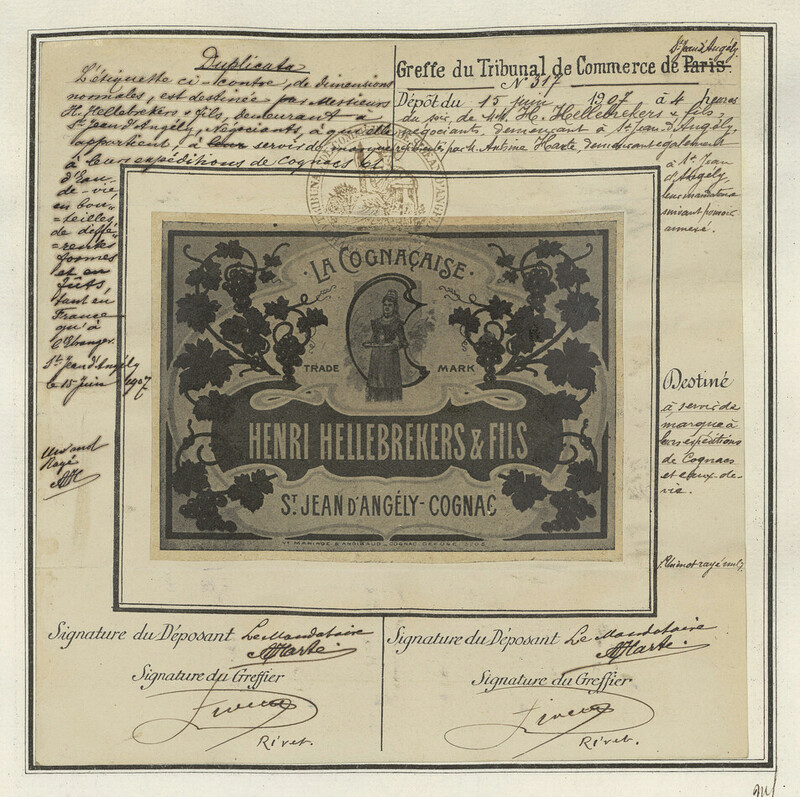 Duplicata
L'étiquette ci-contre, de dimensions
normales, est destinée par Messieurs
H. Hellebrekers & fils, demeurant à
St Jean d'Angély, négociants, à qui elle
appartient, à leur servir de marque
à leurs expéditions de Cognacs et
d'Eau
de-vie
en bou-
=teilles,
de diffé-
=rentes
formes
et en
fûts,
tant en
France
qu'à
l'Etranger.
St Jean d'Angély
le 15 juin 1907
un mot
Rayé
AH
St Jean d'Angély
Greffe du Tribunal de Commerce de Paris.
N° 317
Dépôt du 15 juin 1907 à 4 heures
du soir, de M.M. He. Hellebrekers & fils,
négociants, demeurant à St Jean d'Angély,
représentés par M. Antoine Harte, demeurant également
à St Jean
d'Angély,
leur mandataire
suivant pouvoir
annexé.
LA COGNAÇAISE
TRADE MARK
HENRI HELLEBREKERS & FILS
ST. JEAN D'ANGÉLY - COGNAC
Destiné
à servir de
marque à
leurs expéditions
de Cognacs
et eaux-de-
vie.
Un mot rayé nul
Signature du Déposant Le Mandataire
AHarte
Signature du Greffier
Rivet
Rivet.
Signature du Déposant Le Mandataire
AHarte
Signature du Greffier
Rivet
Rivet.